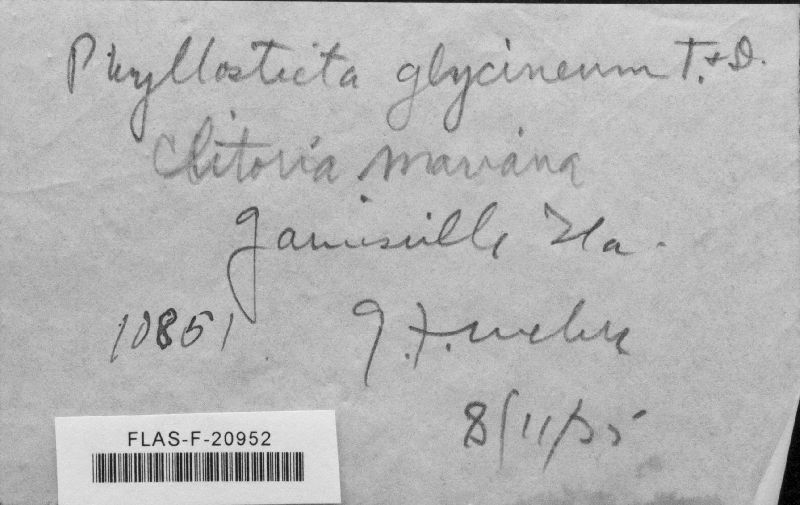 Phyllosticta glycineum T.+D.
Clitoria mariana
Gainesville Fla.
10851 G.F. Weber
8/11/35
FLAS-F-20952